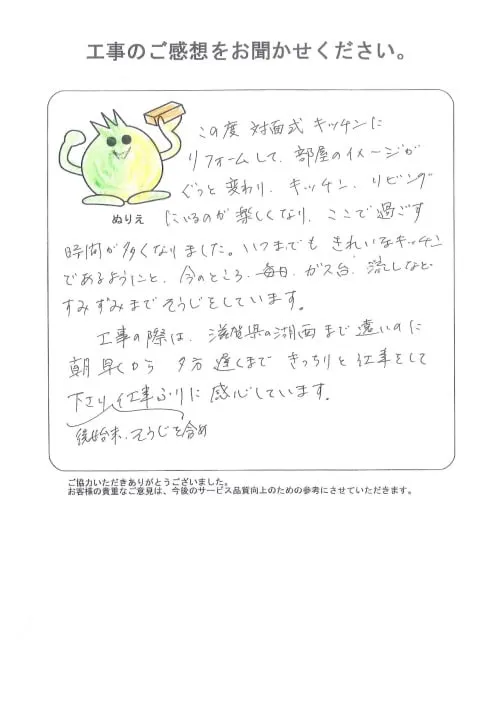 工事のご感想をお聞かせください。
この度 対面式 キッチンに
リフォームして、部屋のイメージが
ぐっと変わり、キッチン、リビング
にいるのが楽しくなり、ここで過ごす
ぬりえ
時間が多くなりました。いつまでも きれいなキッチン
であるようにと、今のところ、毎日、ガス台、流しなど、
すみずみまで そうじをしています。
工事の際は、滋賀県の湖西まで遠いのに
朝早くから 夕方 遅くまで きっちりと仕事をして
下さり、仕事ぶりに感心しています。
後始末、そうじを含め
ご協力いただきありがとうございました。
お客様の貴重なご意見は、今後のサービス品質向上のための参考にさせていただきます。